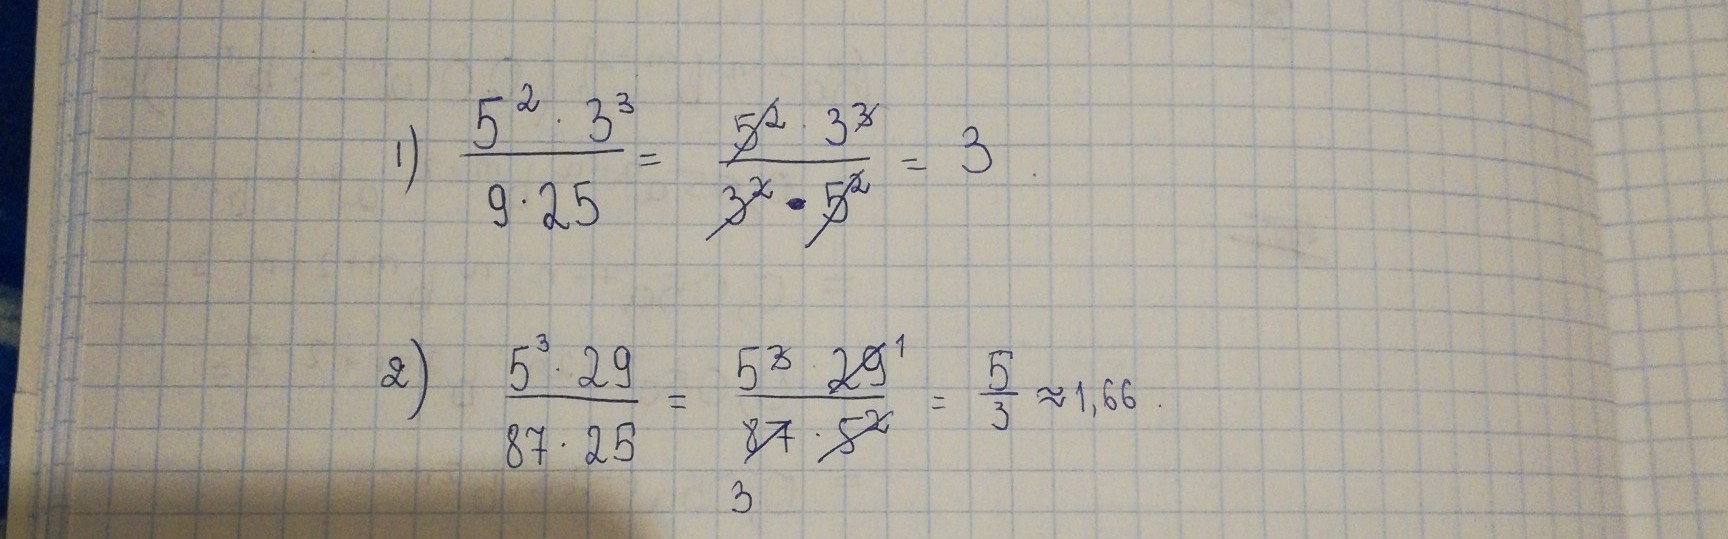 1) 5² · 3³ / 9 · 25 = 5² · 3³ / 3² · 5² = 3
2) 5³ · 29 / 87 · 25 = 5³ · 29 1 / 87 · 5² 3 = 5/3 ≈ 1,66.